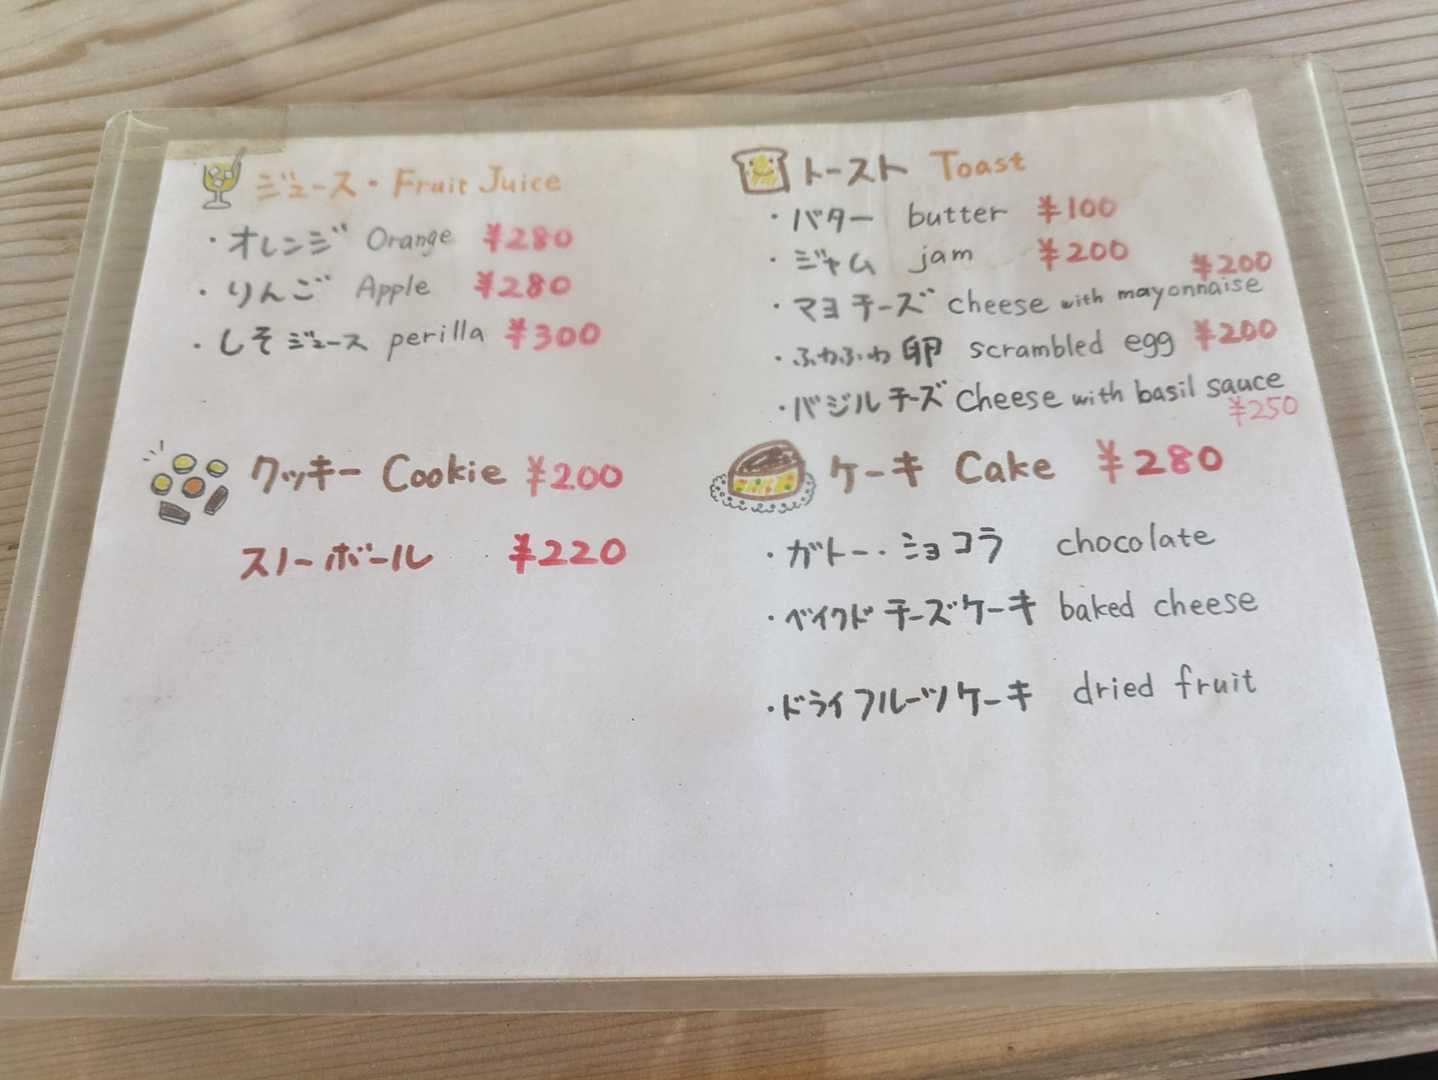 ジュース・Fruit Juice
・オレンジ Orange ¥280
・りんご Apple ¥280
・しそジュース perilla ¥300
クッキー Cookie ¥200
スノーボール ¥220
トースト Toast
・バター butter ¥100
・ジャム jam ¥200
・マヨチーズ cheese with mayonnaise ¥200
・ふわふわ卵 scrambled egg ¥200
・バジルチーズ cheese with basil sauce
¥250
ケーキ Cake ¥280
・ガトー・ショコラ chocolate
・ベイクドチーズケーキ baked cheese
・ドライフルーツケーキ dried fruit